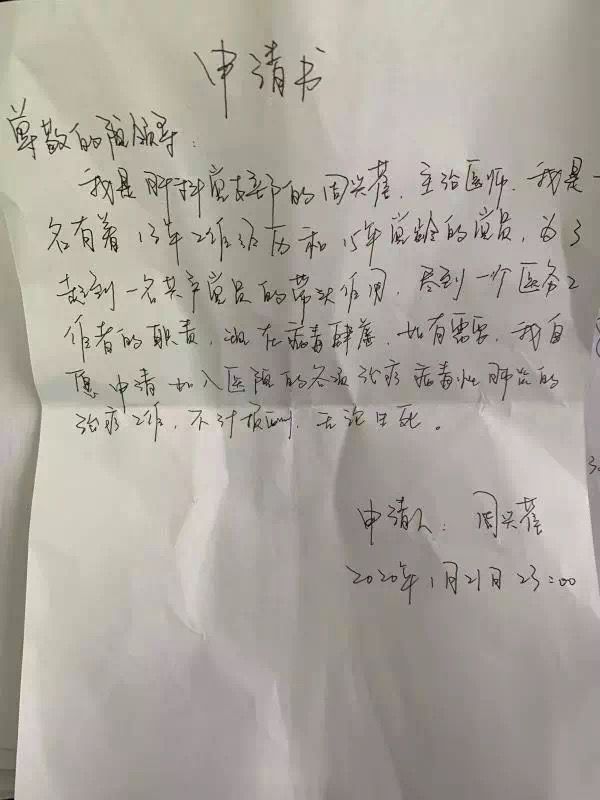 申请书
尊敬的院领导:
我是肝科党支部的周兴, 主治医师, 我是一
名有着13年工作经历和15年党龄的党员, 为了
起到一名共产党员的带头作用, 尽到一个医务工
作者的职责, 现在病毒肆虐, 如有需要, 我自
愿申请加入医院的各项治疗病毒性肺炎的
治疗工作, 不计报酬, 无论生死。
申请人: 周兴
2020年1月21日 23:00